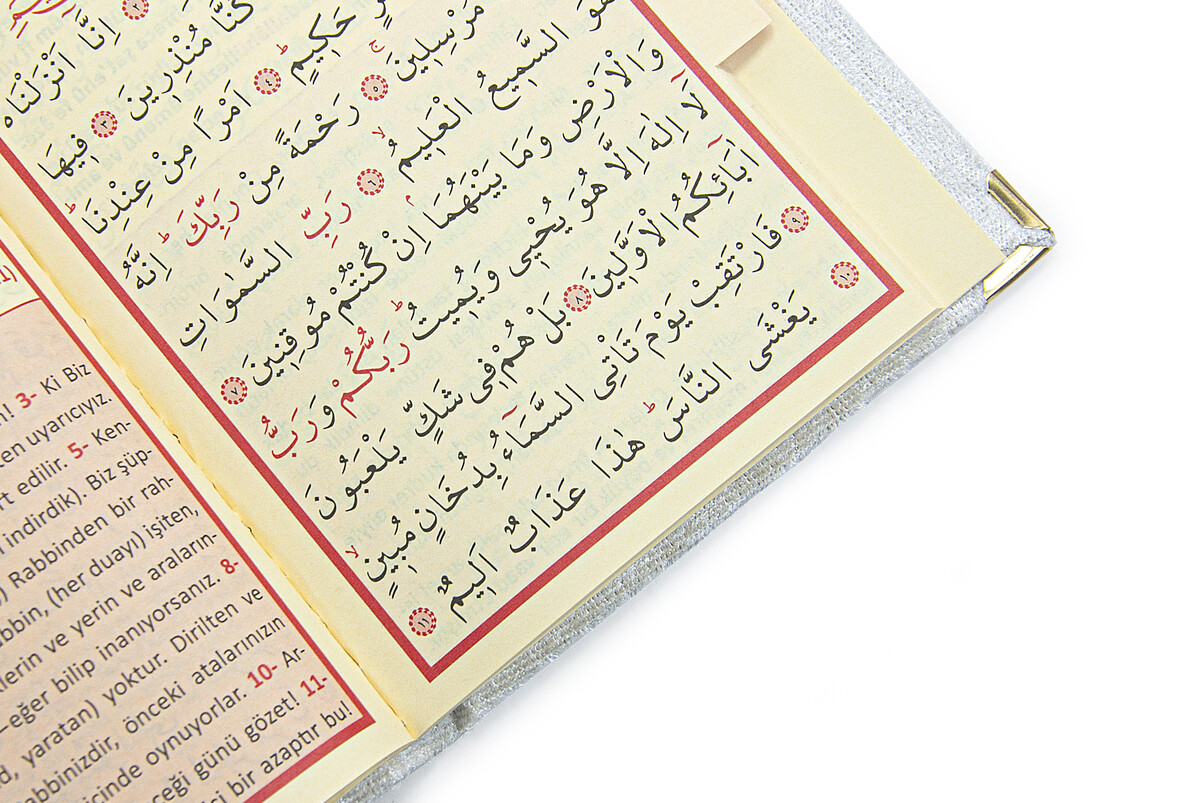 ٢ اِنَّٓا اَنْزَلْنَاهُ
كُنَّا مُنْذِرِينَ ٣ فِيهَا
حَكِيمٍ ٤ اَمْرًا مِنْ عِنْدِنَا
مُرْسِلِينَ ٥ رَحْمَةً مِنْ رَبِّكَ اِنَّهُ
هُوَ السَّمِيعُ الْعَلِيمُ ٦ رَبِّ السَّمٰوَاتِ
وَالْاَرْضِ وَمَا بَيْنَهُمَا اِنْ كُنْتُمْ مُوقِنِينَ ٧
لَٓا اِلٰهَ اِلَّا هُوَ يُحْيِى وَيُمِيتُ رَبُّكُمْ وَرَبُّ
اٰبَٓائِكُمُ الْاَوَّلِينَ ٨ بَلْ هُمْ فِى شَكٍّ يَلْعَبُونَ
٩ فَارْتَقِبْ يَوْمَ تَاْتِى السَّمَٓاءُ بِدُخَانٍ مُبِينٍ
١٠ يَغْشَى النَّاسَ هٰذَا عَذَابٌ اَلِيمٌ ١١
3- Ki Biz
uyarıcıyız.
edilir. 5- Ken-
indirdik). Biz şüp-
Rabbinden bir rah-
(her duayı) işiten,
ve yerin ve araların-
eğer bilip inanıyorsanız. 8-
yaratan) yoktur. Dirilten ve
önceki atalarınızın
oynuyorlar. 10- Ar-
günü gözet! 11-
bir azaptır bu!